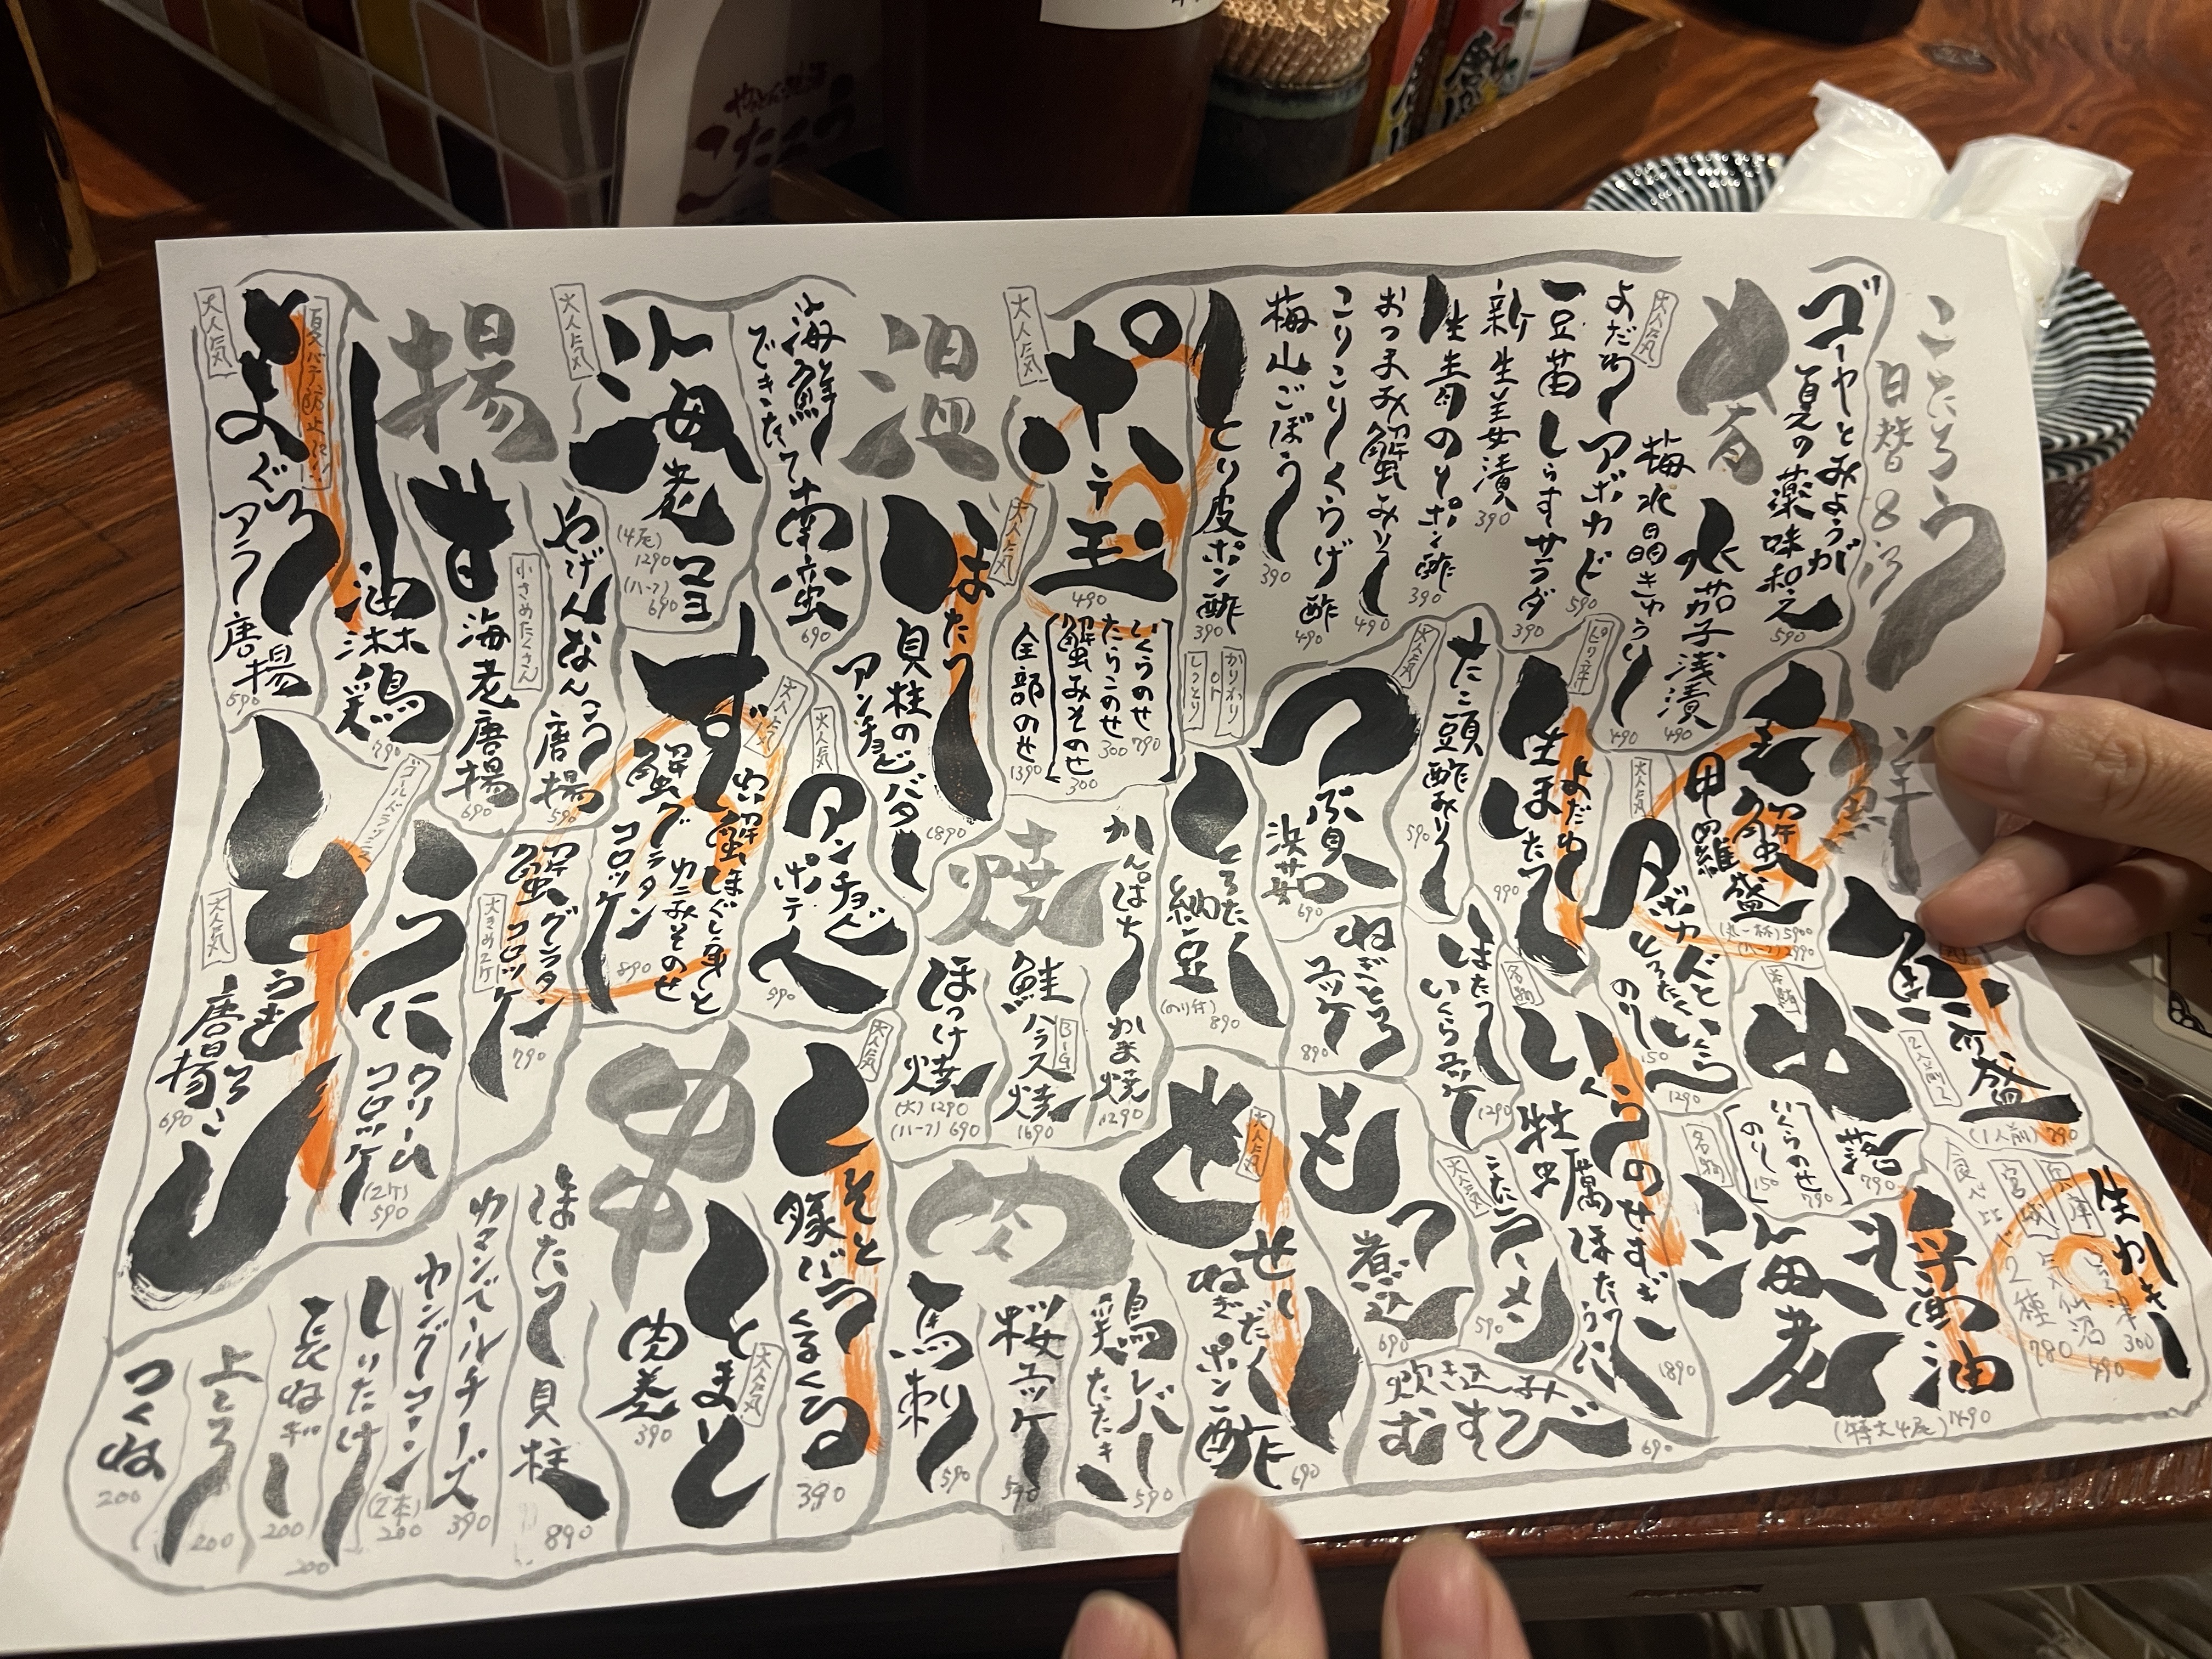 こたろう
日替
ゴーヤとみょうが
夏の薬味和え
590
水茄子浅漬
490
梅水晶きゅうり
490
大人気
よだれアボカド
590
豆苗しらすサラダ
390
新生姜漬
390
生青のりポン酢
390
おつまみ蟹みそ
490
こりこりくらげ酢
490
梅山ごぼう
390
とり皮ポン酢
390
かりかり
or
しっとり
大人気
ポテ玉
490
いくらのせ 790
たらこのせ 300
蟹みそのせ 300
全部のせ 1390
鮮
魚
盛
2人前
(1人前) 790
生かき
兵庫
300
宮城 気仙沼
490
食べ比べ 2種
780
毛蟹
甲羅盛
(丸一杯) 5900
(ハーフ) 2990
大人気
アボカドと
とろたくいくら
1290
のり 150
名物
落
790
いくらのせ 790
のり 150
名物
海老
醤油
(特大4尾) 1490
ピリ辛
よだれ
生ほたて
990
たこ頭
酢みそ
590
大人気
つぶ貝
浜茹
690
ねぎとろ
ユッケ
890
ほたて
いくらユッケ
1290
名物
いくらのせすぎ
牡蠣ほたてうに
1890
とろたく
納豆
(のり付) 890
もつ
煮込
690
大人気
こたラーメン
590
炊き込み
むすび
690
温
海鮮
できたて南蛮
690
大人気
ほたて
貝柱のどバター
アンチョビ
1890
大人気
海老マヨ
(4尾)
1290
(ハーフ)
690
大人気
アンチョビ
ポテ
590
焼
かんぱち
かま焼
1290
鮭ハラス焼
Big
1690
ほっけ焼
(大) 1290
(ハーフ) 690
肉
大人気
せせり
ねぎだく
ポン酢
690
鶏レバー
たたき
590
桜ユッケ
590
馬刺
590
揚
やげんなんこつ
唐揚
590
小さめたくさん
海老唐揚
690
油淋鶏
790
夏バテ防止に!
大人気
まぐろ
アラ
唐揚
590
大人気
蟹ほぐし身と
カニみそのせ
蟹グラタン
コロッケ
890
蟹グラタン
コロッケ
大きめ2ケ
790
うに
クリーム
コロッケ
(2ケ)
590
大人気
唐揚
690
串
大人気
しそと
豚バラ
くるくる
390
大人気
とまと
肉巻
390
ほたて貝柱
890
カマンベールチーズ
390
ヤングコーン
(2本)
200
しいたけ
200
長ねぎ
200
上しろ
200
つくね
200